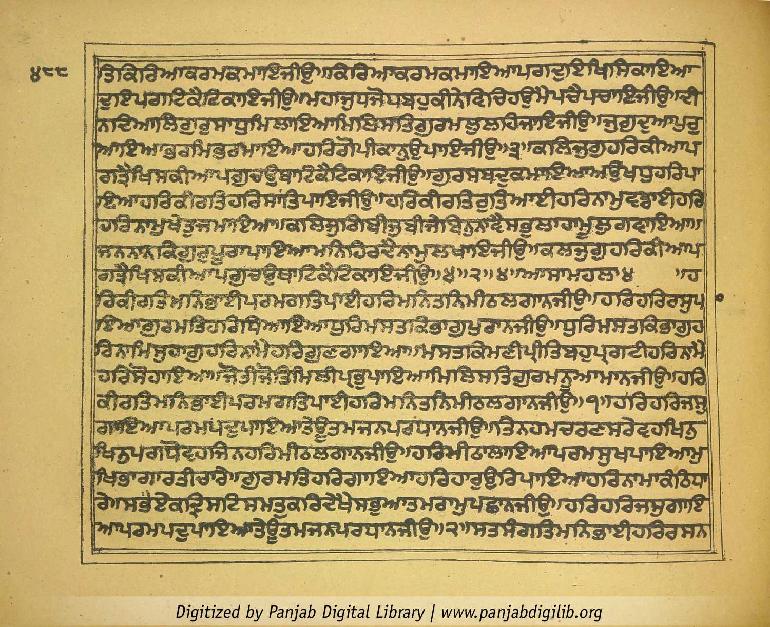 ੪੮੮
ਤਿਕਿਰਿਆਕਰਮਕਮਾਇਜੀਉ॥ਕਿਰਿਆਕਰਮਕਮਾਇਆਪਗਦੁਇਖਿਸਕਾਇਆ
ਦੁਇਪਗਟਿਕੈਟਿਕਾਇਜੀਉ॥ਮਹਾਜੁਧਜੋਧਬਹੁਕੀਨੇਵਿਚਿਹਉਮੈਪਚੈਪਚਾਇਜੀਉ॥ਦੀ
ਨਦਿਆਲਿਗੁਰੁਸਾਧੁਮਿਲਾਇਆਮਿਲਿਸਤਿਗੁਰਮਲੁਲਹਿਜਾਇਜੀਉ॥ਜੁਗੁਦੁਆਪੁਰੁ
ਆਇਆਭਰਮਿਭਰਮਾਇਆਹਰਿਗੋਪੀਕਾਨੁਉਪਾਇਜੀਉ॥੩॥ਕਲਿਜੁਗੁਹਰਿਕੀਆਪ
ਗਤ੍ਰੈਖਿਸਕੀਆਪਗੁਚਉਥਾਟਿਕੈਟਿਕਾਇਜੀਉ॥ਗੁਰਸਬਦੁਕਮਾਇਆਅਉਖਧੁਹਰਿਪਾ
ਇਆਹਰਿਕੀਰਤਿਹਰਿਸਾਂਤਿਪਾਇਜੀਉ॥ਹਰਿਕੀਰਤਿਰੁਤਿਆਈਹਰਿਨਾਮੁਵਡਾਈਹਰਿ
ਹਰਿਨਾਮੁਖੇਤੁਜਮਾਇਆ॥ਕਲਿਜੁਗਿਬੀਜੁਬੀਜੇਬਿਨੁਨਾਵੈਸਭੁਲਾਹਾਮੂਲੁਗਵਾਇਆ॥
ਜਨਨਾਨਕਿਗੁਰੁਪੂਰਾਪਾਇਆਮਨਿਹਿਰਦੈਨਾਮੁਲਖਾਇਜੀਉ॥ਕਲਜੁਗੁਹਰਿਕੀਆਪ
ਗਤ੍ਰੈਖਿਸਕੀਆਪਗੁਚਉਥਾਟਿਕੈਟਿਕਾਇਜੀਉ॥੪॥੨॥੪॥ਆਸਾਮਹਲਾ੪ ॥ਹ
ਰਿਕੀਰਤਿਮਨਿਭਾਈਪਰਮਗਤਿਪਾਈਹਰਿਮਨਿਤਨਿਮੀਠਲਗਾਨਜੀਉ॥ਹਰਿਹਰਿਰਸੁਪ
ਇਆਗੁਰਮਤਿਹਰਿਧਿਆਇਆਧੁਰਿਮਸਤਕਿਭਾਗੁਪੁਰਾਨਜੀਉ॥ਧੁਰਿਮਸਤਕਿਭਾਗੁਹ
ਰਿਨਾਮਿਸੁਹਾਗੁਹਰਿਨਾਮੈਹਰਿਗੁਣਗਾਇਆ॥ਮਸਤਕਿਮਣੀਪ੍ਰੀਤਿਬਹੁਪ੍ਰਗਟੀਹਰਿਨਾਮੈ
ਹਰਿਸੋਹਾਇਆ॥ਜੋਤੀਜੋਤਿਮਿਲੀਪ੍ਰਭੁਪਾਇਆਮਿਲਿਸਤਿਗੁਰਮਨੂਆਮਾਨਜੀਉ॥ਹਰਿ
ਕੀਰਤਿਮਨਿਭਾਈਪਰਮਗਤਿਪਾਈਹਰਿਮਨਿਤਨਿਮੀਠਲਗਾਨਜੀਉ॥੧॥ਹਰਿਹਰਿਜਸੁ
ਗਾਇਆਪਰਮਪਦੁਪਾਇਆਤੇਊਤਮਜਨਪਰਧਾਨਜੀਉ॥ਤਿਨਹਮਚਰਣਸਰੇਵਹਖਿਨੁ
ਖਿਨੁਪਗਧੋਵਹਜਿਨਹਰਿਮੀਠਲਗਾਨਜੀਉ॥ਹਰਿਮੀਠਾਲਾਇਆਪਰਮਸੁਖਪਾਇਆਮੁ
ਖਿਭਾਗਾਰਤੀਚਾਰੇ॥ਗੁਰਮਤਿਹਰਿਗਾਇਆਹਰਿਹਾਰੁਉਰਿਪਾਇਆਹਰਿਨਾਮਾਕੰਠਿਧਾ
ਰੇ॥ਸਭਏਕਦ੍ਰਿਸਟਿਸਮਤੁਕਰਿਦੇਖੈਸਭੁਆਤਮਰਾਮੁਪਛਾਨਜੀਉ॥ਹਰਿਹਰਿਜਸੁਗਾਇ
ਆਪਰਮਪਦੁਪਾਇਆਤੇਊਤਮਜਨਪਰਧਾਨਜੀਉ॥੨॥ਸਤਸੰਗਤਿਮਨਿਭਾਈਹਰਿਰਸਨ
Digitized by Panjab Digital Library | www.panjabdigilib.org